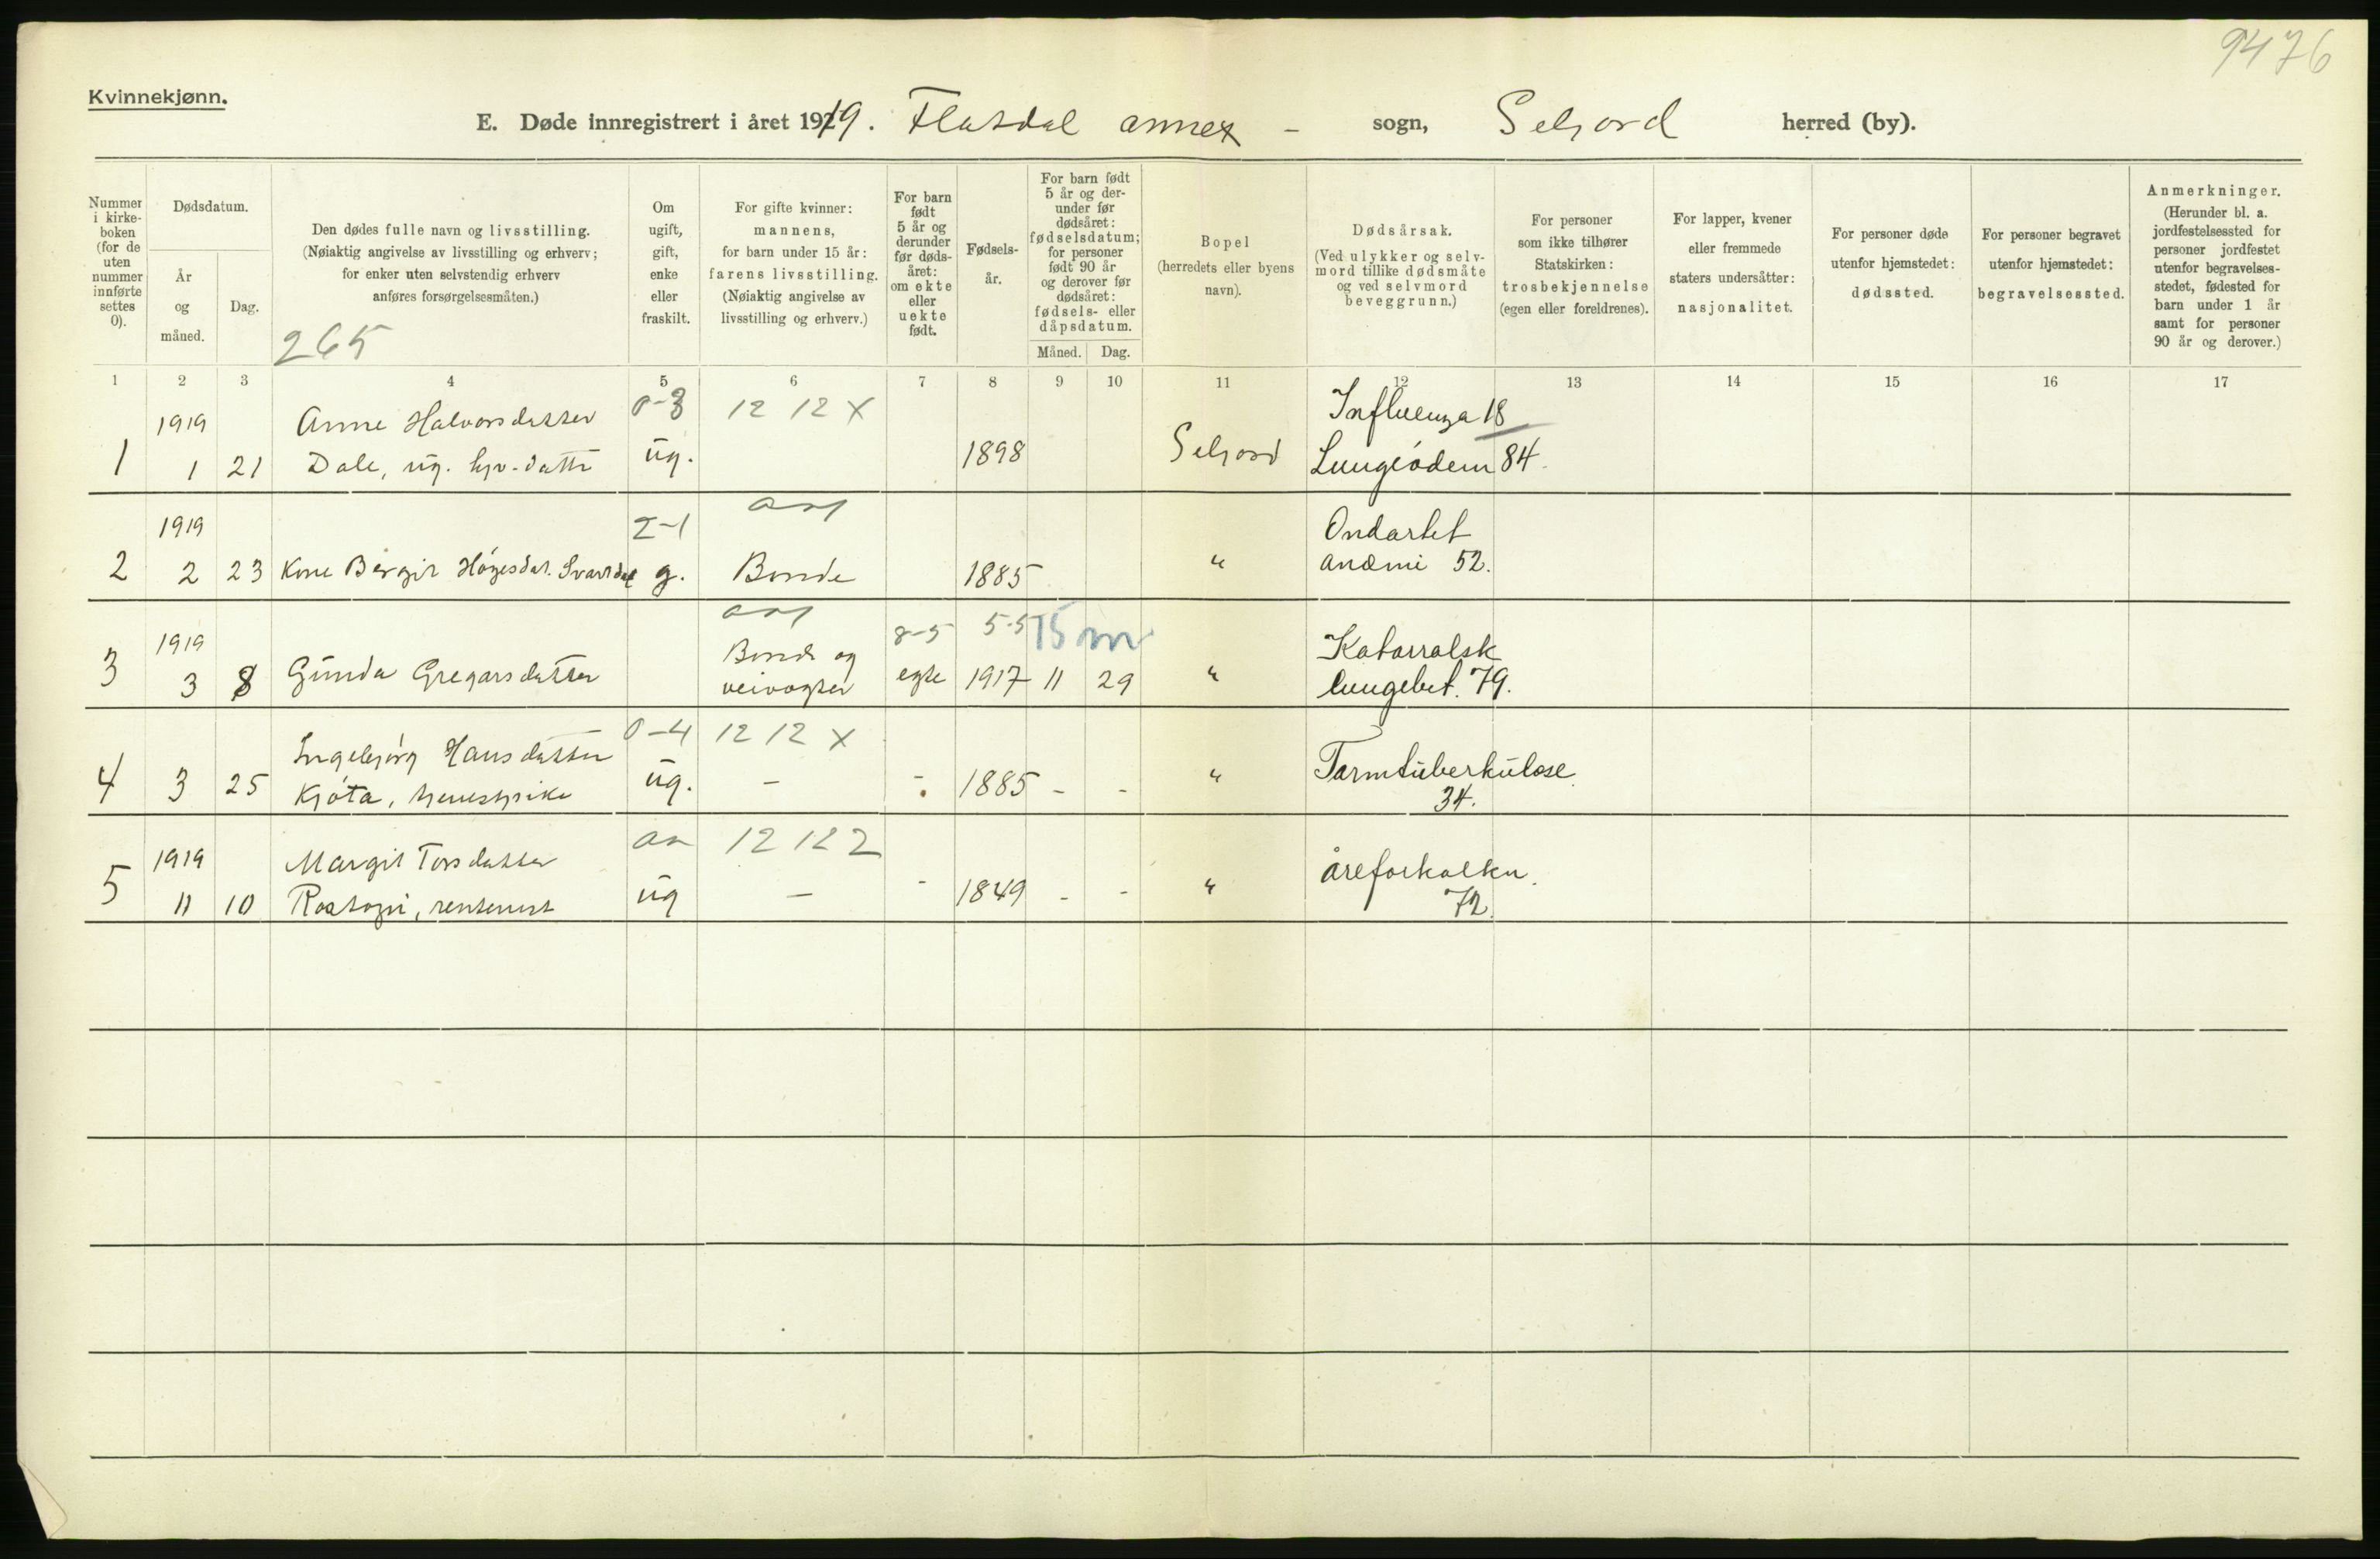 9476
Kvinnekjønn.
E. Døde innregistrert i året 1919. Flatdal annex - sogn, Seljord herred (by).
Nummer i kirke- boken (for de uten nummer innførte settes 0).
Dødsdatum.
År og måned.
Dag.
Den dødes fulle navn og livsstilling.
(Nøiaktig angivelse av livsstilling og erhverv;
for enker uten selvstendig erhverv
anføres forsørgelsesmåten.)
265
Om ugift, gift, enke eller fraskilt.
For gifte kvinner:
mannens,
for barn under 15 år:
farens livsstilling.
(Nøiaktig angivelse av
livsstilling og erhverv.)
For barn født 5 år og derunder før døds- året: om ekte eller uekte født.
Fødsels- år.
For barn født 5 år og der- under før dødsåret: fødselsdatum; for personer født 90 år og derover før dødsåret: fødsels- eller dåpsdatum.
Måned. Dag.
Bopel
(herredets eller byens
navn).
Dødsårsak.
(Ved ulykker og selv-
mord tillike dødsmåte
og ved selvmord
beveggrunn.)
For personer
som ikke tilhører
Statskirken:
trosbekjennelse
(egen eller foreldrenes).
For lapper, kvener
eller fremmede
staters undersåtter:
nasjonalitet.
For personer døde
utenfor hjemstedet:
dødssted.
For personer begravet
utenfor hjemstedet:
begravelsessted.
Anmerkninger.
(Herunder bl. a.
jordfestelsessted for
personer jordfestet
utenfor begravelses-
stedet, fødested for
barn under 1 år
samt for personer
90 år og derover.)
1 2 3 4 5 6 7 8 9 10 11 12 13 14 15 16 17
1919 Anne Halvorsdatter 0-3 12 12 X Influenza 18
1 1 21 Dale, ug. ug. 1898 Seljord Lungeødem 84.
1919 2-1 Ondartet
2 2 23 Kone Bergit Høgesdat. Svartdal g. Bonde 1885 " anæmi 52.
1919 Bonde og 8-5 5-5 15 m Katarralsk
3 3 8 Gunda Gregarsdatter veivogter egte 1917 11 29 " lungebet. 79.
Ingebjørg Hansdatter 0-4 12 12 X
4 3 25 Kjøta, tjenestpike ug. - - 1885 - - " Tarmtuberkulose
34.
1919 Margit Torsdatter 12 12 2 åreforkalkn.
5 11 10 ug - - 1849 - - " 72.